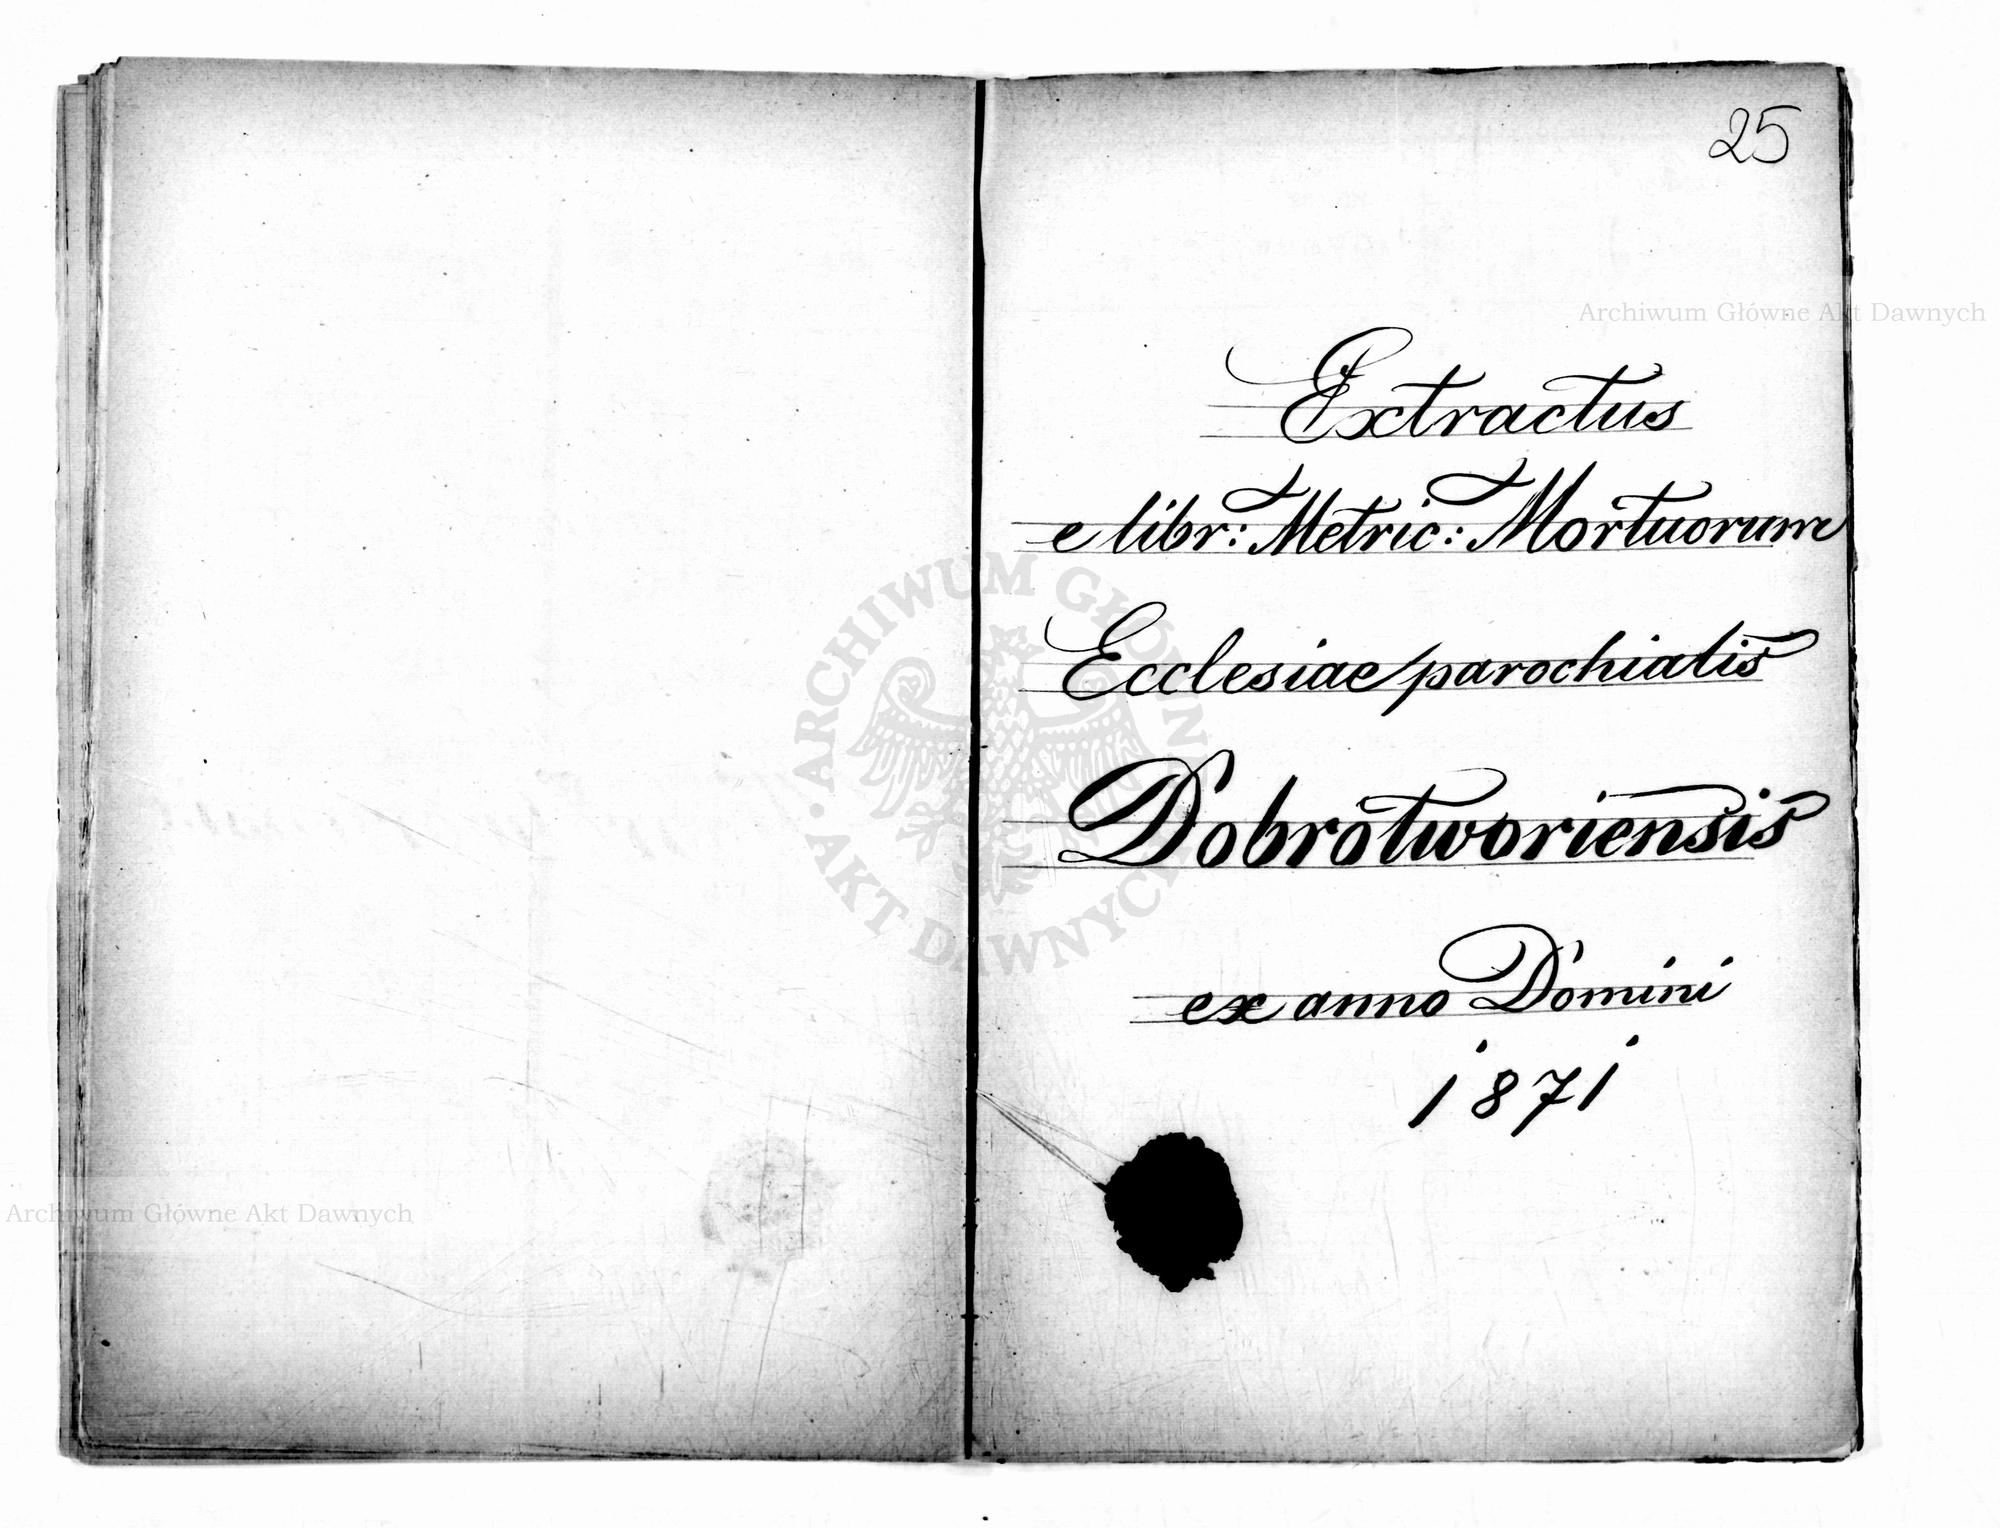 25
Archiwum Główne Akt Dawnych
Extractus
e libr: Metric: Mortuorum
Ecclesiae parochialis
Dobrotworiensis
ex anno Domini
1871
ARCHIWUM GŁÓWNE AKT DAWNYCH
Archiwum Główne Akt Dawnych